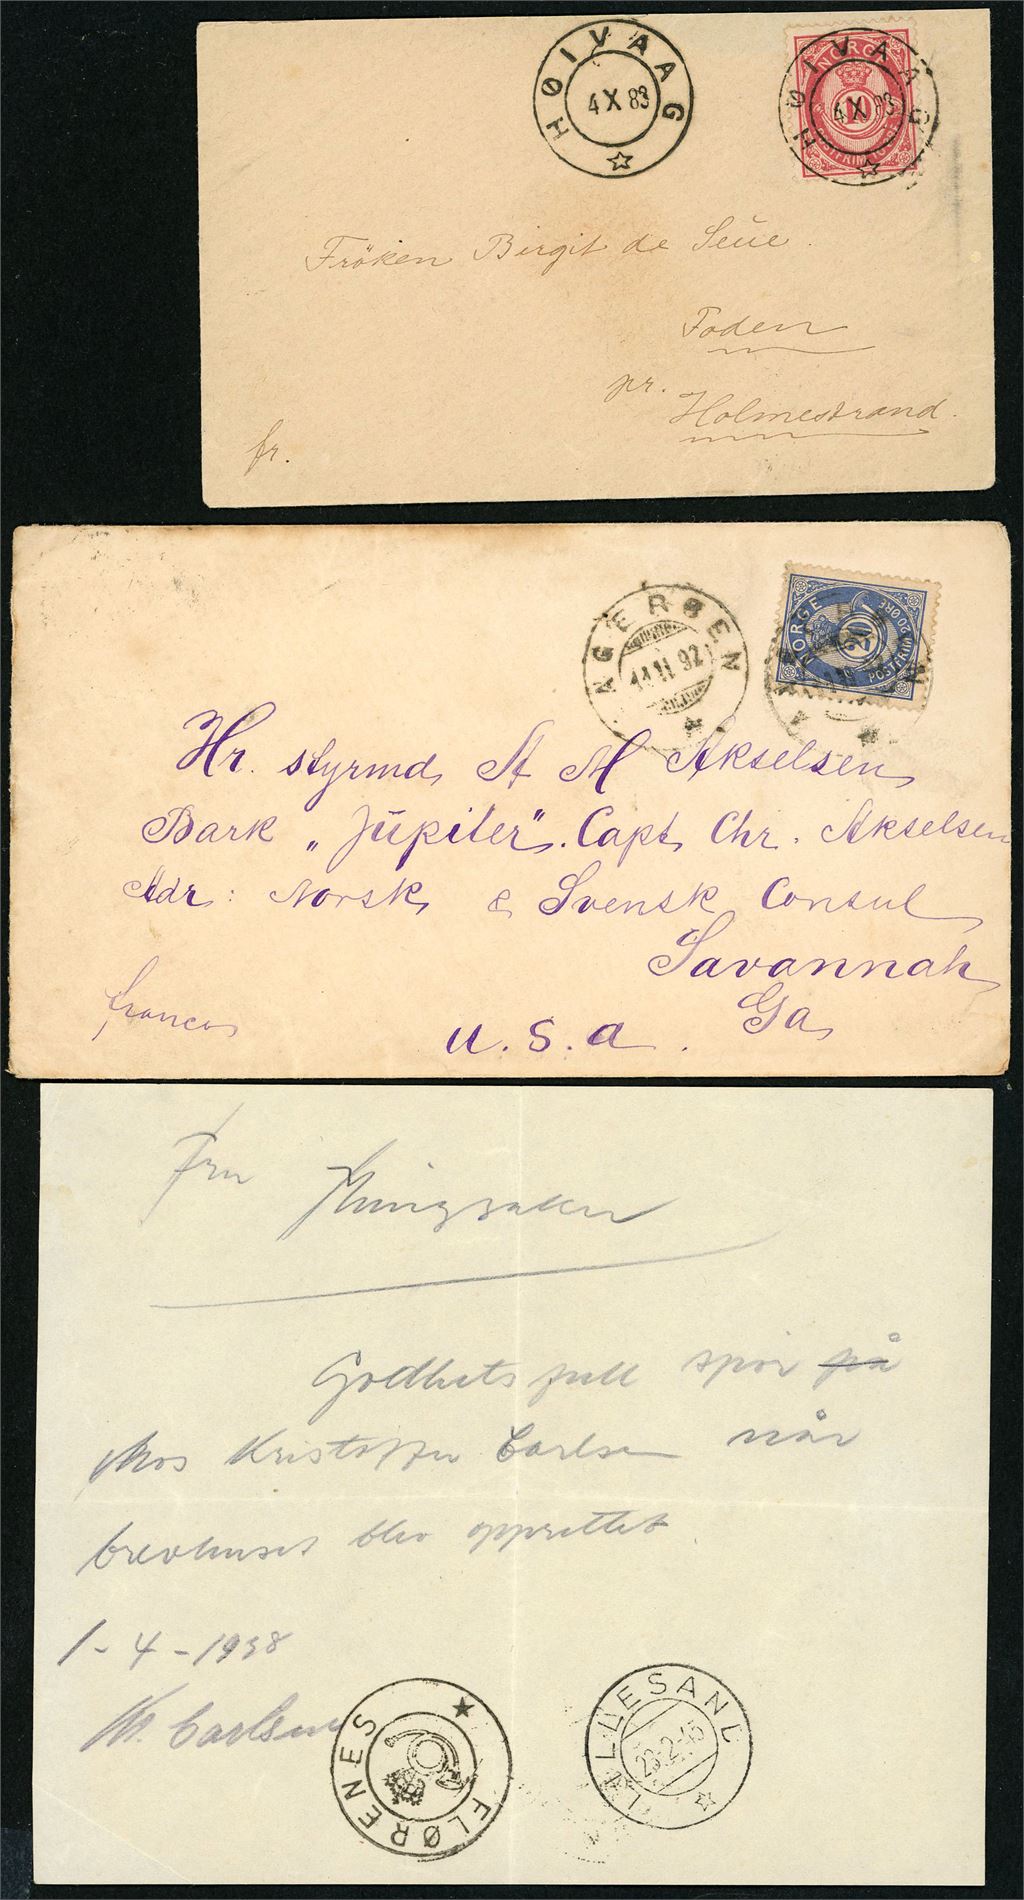 HØIVAAG
4 X 83
NORGE
10
POSTFRIM 10 ØRE
HØIVAAG
4 X 83
Fröken Birgit de Seüe.
Foden
pr.
Holmestrand.
fr.
AGERØEN
14 11 92
NORGE
20
POSTFRIM 20 ØRE
Hr. styrmd A M Akselsen
Bark „Jüpiter". Capt Chr. Akselsen
Adr: Norsk & Svensk Consul
Savannah
Ga
franco
U.S.a.
Fru
Godhetsfull spør på
hos Kristoffer Carlsen når
brevhuset blev opprettet
1-4-1938
Carlsen
FLØRENES
LILLESAND
23-2-45